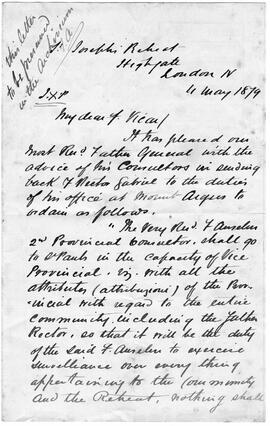 this letter
to be preserved
in the archivium
Joseph's Retreat
Highgate
London N
4 May 1879
J.X.P.
My dear F. Vicar/
It has pleased our
Most Revd. Father General with the
advice of his Consultors in sending
back F Rector Gabriel to the duties
of his office at Mount Argus to
ordain as follows.
"The Very Revd. F Anselm
2nd Provincial Consultor, shall go
to St Pauls in the capacity of Vice
Provincial, viz. with all the
attributes (attribuzioni) of the Prov-
incial with regard to the entire
community, including the Father
Rector, so that it will be the duty
of the said F. Anselm to exercise
surveillance over every thing
appertaining to the Community
and the Retreat, nothing shall